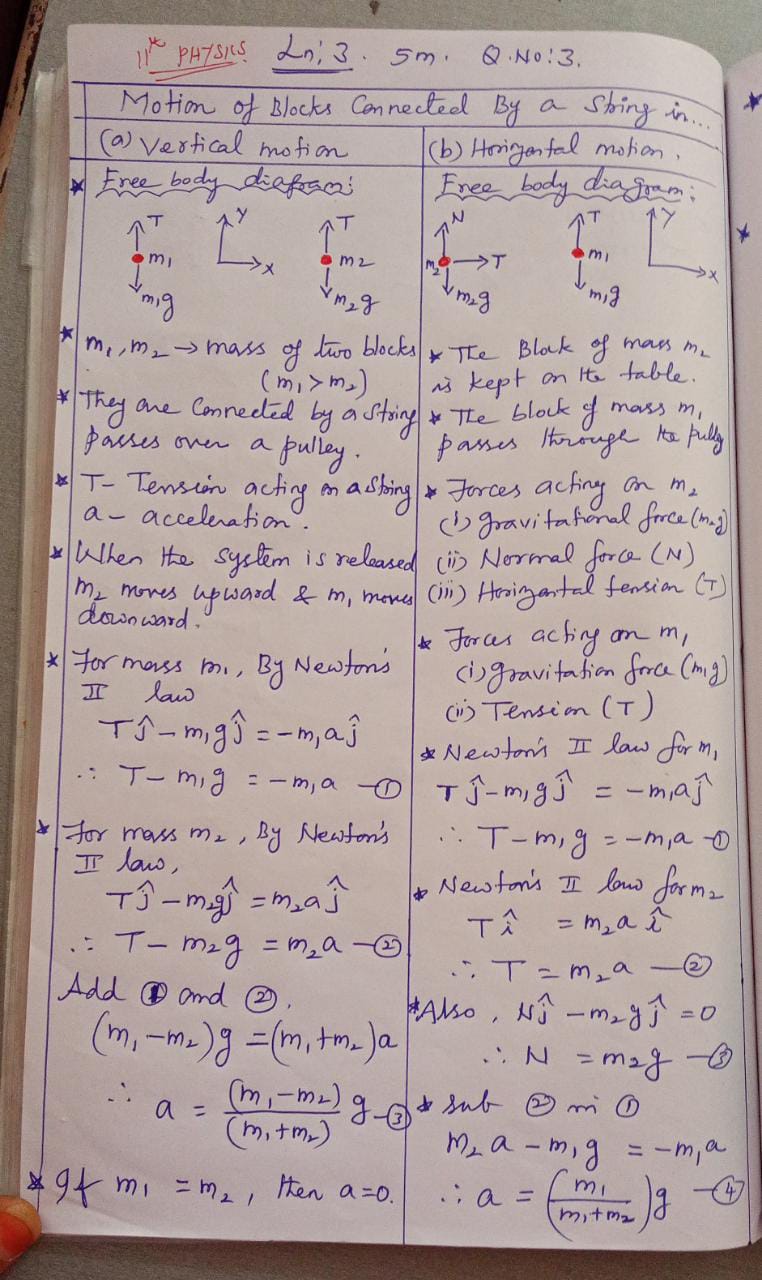 11th PHYSICS Ln: 3. 5m. Q.No: 3.
Motion of Blocks Connected By a String in...
(a) Vertical motion
★ Free body diagram:
T Y T
m₁ m₂
X
m₁g m₂g
★ m₁, m₂ → mass of two blocks
(m₁ > m₂)
★ They are Connected by a String
passes over a pulley.
★ T - Tension acting on a String
a - acceleration.
★ When the system is released
m₂ moves upward & m₁ moves
downward.
★ For mass m₁, By Newton's
II law
Tĵ - m₁gĵ = -m₁aĵ
∴ T - m₁g = -m₁a - ①
★ For mass m₂, By Newton's
II law,
Tĵ - m₂gĵ = m₂aĵ
∴ T - m₂g = m₂a - ②
Add ① and ②.
(m₁ - m₂)g = (m₁ + m₂)a
∴ a = (m₁ - m₂)/(m₁ + m₂) g - ③
★ If m₁ = m₂, then a = 0.
(b) Horizontal motion.
Free body diagram:
N T Y
m₂ T m₁
X
m₂g m₁g
★ The Block of mass m₂
is kept on the table.
★ The block of mass m₁
passes through the pully
★ Forces acting on m₂
(i) gravitational force (m₂g)
(ii) Normal force (N)
(iii) Horizontal tension (T)
★ Forces acting on m₁
(i) gravitation force (m₁g)
(ii) Tension (T)
★ Newton's II law for m₁
Tĵ - m₁gĵ = -m₁aĵ
∴ T - m₁g = -m₁a - ①
★ Newton's II law for m₂
Tî = m₂aî
∴ T = m₂a - ②
★ Also, Nĵ - m₂gĵ = 0
∴ N = m₂g - ③
★ sub ② in ①
m₂a - m₁g = -m₁a
∴ a = (m₁/(m₁ + m₂))g - ④